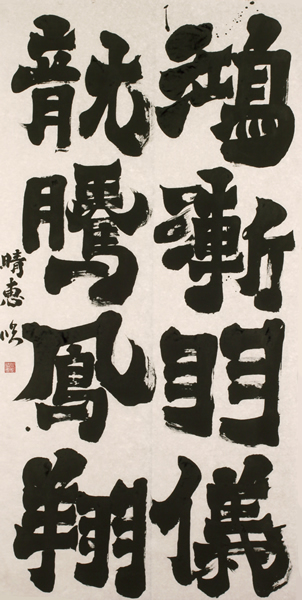 鴻漸羽儀
龍騰鳳翔
晴惠